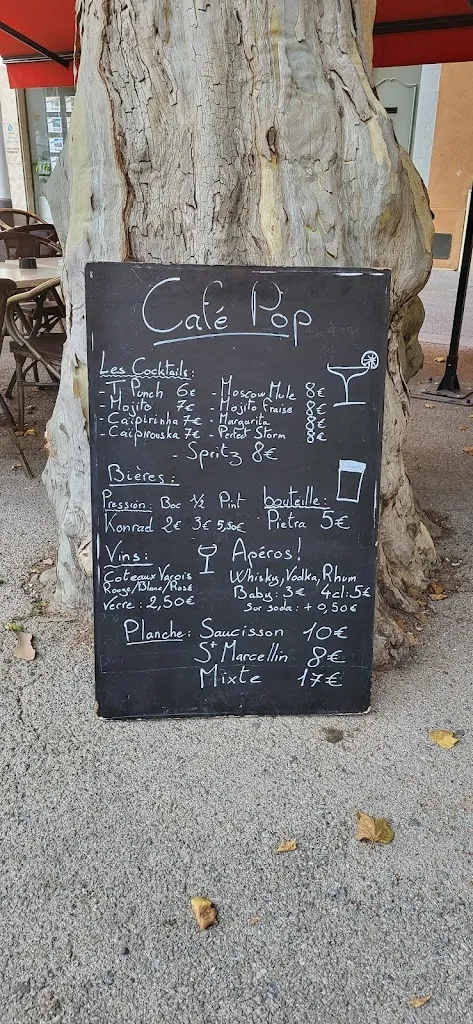 Café Pop
Les Cocktails:
- T Punch 6€ - Moscow Mule 8€
- Mojito 7€ - Mojito Fraise 8€
- Caïpirinha 7€ - Margarita 8€
- Caïpirouska 7€ - Perfect Storm 8€
- Spritz 8€
Bières:
Pression: Boc ½ Pint bouteille:
Konrad 2€ 3€ 5,50€ Pietra 5€
Vins: Apéros!
Coteaux Varois Whisky, Vodka, Rhum
Rouge/Blanc/Rosé Baby: 3€ 4cl: 5€
verre: 2,50€ Sur soda: + 0,50€
Planche: Saucisson 10€
St Marcellin 8€
Mixte 17€